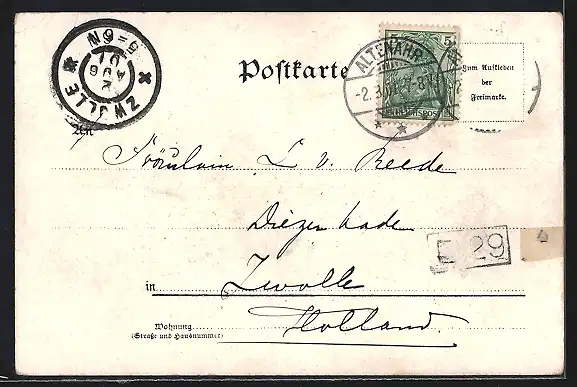 ZWOLLE
5-6N
2
AUG
01
Postkarte
5
ALTENAHR
7-8V
REICHSPOST
Zum Aufkleben
der
Freimarke.
An
Fräulein L v. Reede
Diezerkade
E 29
in Zwolle
Holland.
Wohnung
(Straße und Hausnummer)